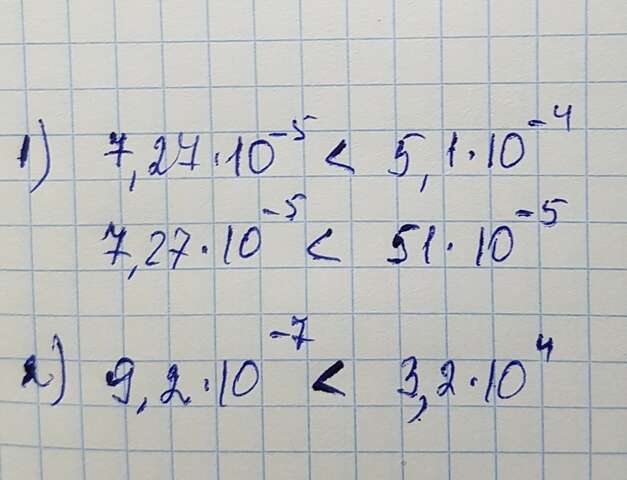 1) 7,27·10⁻⁵ < 5,1·10⁻⁴
7,27·10⁻⁵ < 51·10⁻⁵
2) 9,2·10⁻⁷ < 3,2·10⁴